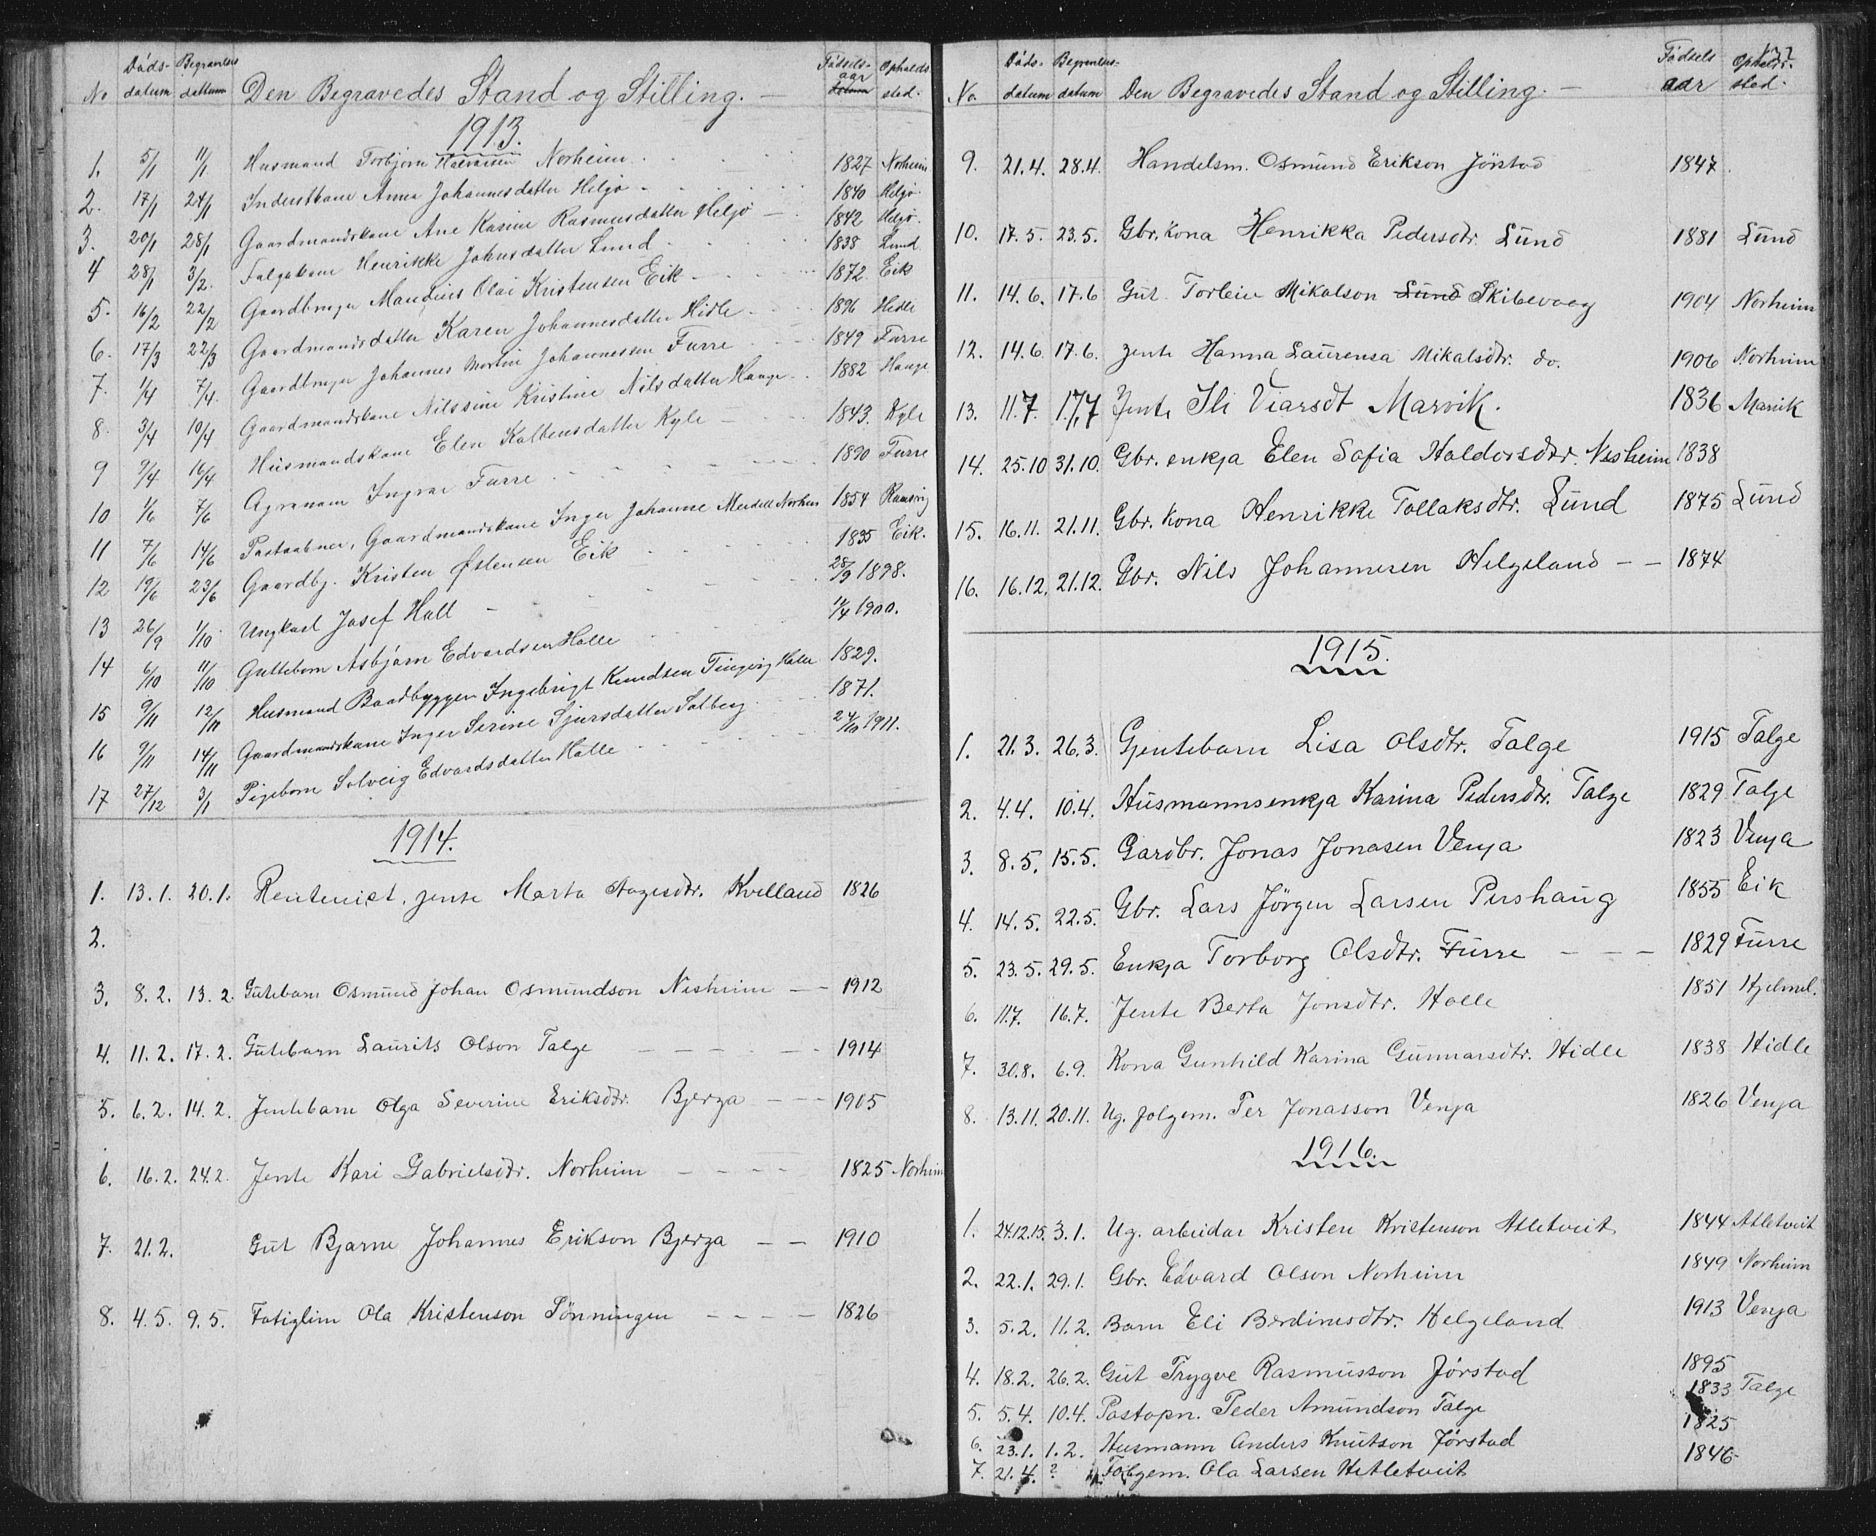 No Döds-datum Begravelses dattum Den Begravedes Stand og Stilling. — Födsels-aar Opholds sted.
1913.
1. 5/1 11/1 Husmand Torbjørn Halvorsen Norheim 1827 Norheim
2. 17/1 24/1 Inderstkone Anna Johannesdatter Heljø 1840 Heljø.
3. 20/1 28/1 Gaardmandskone Ane Kasine Rasmusdatter Heljø 1842 Heljø.
4 28/1 3/2. Følgekone Henrikke Johnsdatter Lund 1838 Lund
5. 16/2 22/2 Gaardbruger Mandius Olai Kristensen Eik 1872 Eik
6. 17/3 22/3 Gaardmandsdatter Karen Johannesdatter Hidle 1896 Hidle
7. 1/4 7/4. Gaardbruger Johannes Martin Johannessen Furre 1849 Furre
8. 3/4 10/4 Gaardmandskone Nilssine Kristine Nilsdatter Hauge 1882 Hauge
9 9/4 16/4 Husmandskone Elen Kolbensdatter Kyle 1843. Kyle
10 1/6 7/6 Agronom Ingvar Furre 1890 Furre
11 7/6 14/6 Postaabner, Gaardmandskone Inger Johanne Meidell Norheim 1854 Ramsvig
12 19/6 23/6 Gaardbg. Kristen Østensen Eik 1835 Eik.
13 26/9 1/10 Ungkarl Josef Hall 28/9 1898.
14 6/10 11/10 Guttebarn Asbjørn Edvardsen Halle 11/4 1900.
15 9/11 12/11 Husmand Baadbygger Ingebrigt Knudsen Tingvig Halle 1829.
16 9/11 14/11 Gaardmandskone Inger Serine Sjursdatter Solberg 1871.
17 27/12 3/1 Pigebarn Solveig Edvardsdatter Halle 24/10 1911.
1914.
1. 13.1. 20.1. Rentenist, jente Marta Aagesdtr. Kvelland 1826
2.
3. 8.2. 13.2. Gutebarn Osmund Johan Osmundson Nesheim — 1912
4. 11.2. 17.2. Gutebarn Laurits Olson Talge 1914
5. 6.2. 14.2. Jentebarn Olga Severine Eriksdtr. Bjerga 1905
6. 16.2. 24.2. Jente Kari Gabrielsdtr. Norheim 1825 Norheim
7. 21.2. Gut Bjarne Johannes Erikson Bjerga 1910
8. 4.5. 9.5. Fatiglim Ola Kristenson Tønningen 1826
No. Döds-datum Begravelses-datum Den Begravedes Stand og Stilling. — Födsels aar Opholds-sted.
9. 21.4. 28.4. Handelsm. Osmund Erikson Jörstad 1847
10. 17.5. 23.5. Gbr. kona Henrikka Pedersdtr. Lund 1881 Lund
11. 14.6. 17.6 Gut Torleiv Mikalson Lund Skibevaag 1904 Norheim
12. 14.6. 17.6. Jente Hanna Laurensa Mikalsdtr. do. 1906 Norheim
13. 11.7. 17.7 Jente Ili Viarsdt Marvik. 1836 Marvik
14. 25.10 31.10. Gbr. enkja Elen Sofia Haldorsdtr. Nesheim 1838
15. 16.11. 21.11. Gbr. kona Henrikke Tollaksdtr. Lund 1875 Lund
16. 16.12. 21.12. Gbr. Nils Johannesen Helgeland 1874
1915.
1. 21.3. 26.3. Gjentebarn Lisa Olsdtr. Talge 1915 Talge
2. 4.4. 10.4. Husmannsenkja Karina Pedersdtr. Talge 1829 Talge
3. 8.5. 15.5. Gardbr. Jonas Jonasen Venja 1823 Venja
4. 14.5. 22.5. Gbr. Lars Jörgen Larsen Pershaug 1855 Eik
5. 23.5. 29.5. Enkja Torborg Olsdtr. Furre 1829 Furre
6. 11.7. 16.7. Jente Berta Jonsdtr. Halle 1851 Hjelmel.
7. 30.8. 6.9. Kona Gunhild Karina Gunnarsdtr. Hidle 1838 Hidle
8. 13.11. 20.11. Ug. folgem. Per Jonasson Venja 1826 Venja
1916.
1. 24.12.15. 3.1. Ug. arbeidar Kristen Kristenson Atletveit 1844 Atletveit
2. 22.1. 29.1. Gbr. Edvard Olson Norheim 1849 Norheim
3. 5.2. 11.2. Barn Eli Berdinesdtr. Helgeland 1913 Venja
4. 18.2. 26.2. Gut Trygve Rasmusson Jörstad 1895
5. 5.4. 10.4. Postopn. Peder Amundson Talge 1833 Talge
6. 23.1. 1.2. Husmann Anders Knutson Jörstad 1825
7. 21.4. ? Folgem. Ola Larsen Hetletveit 1846